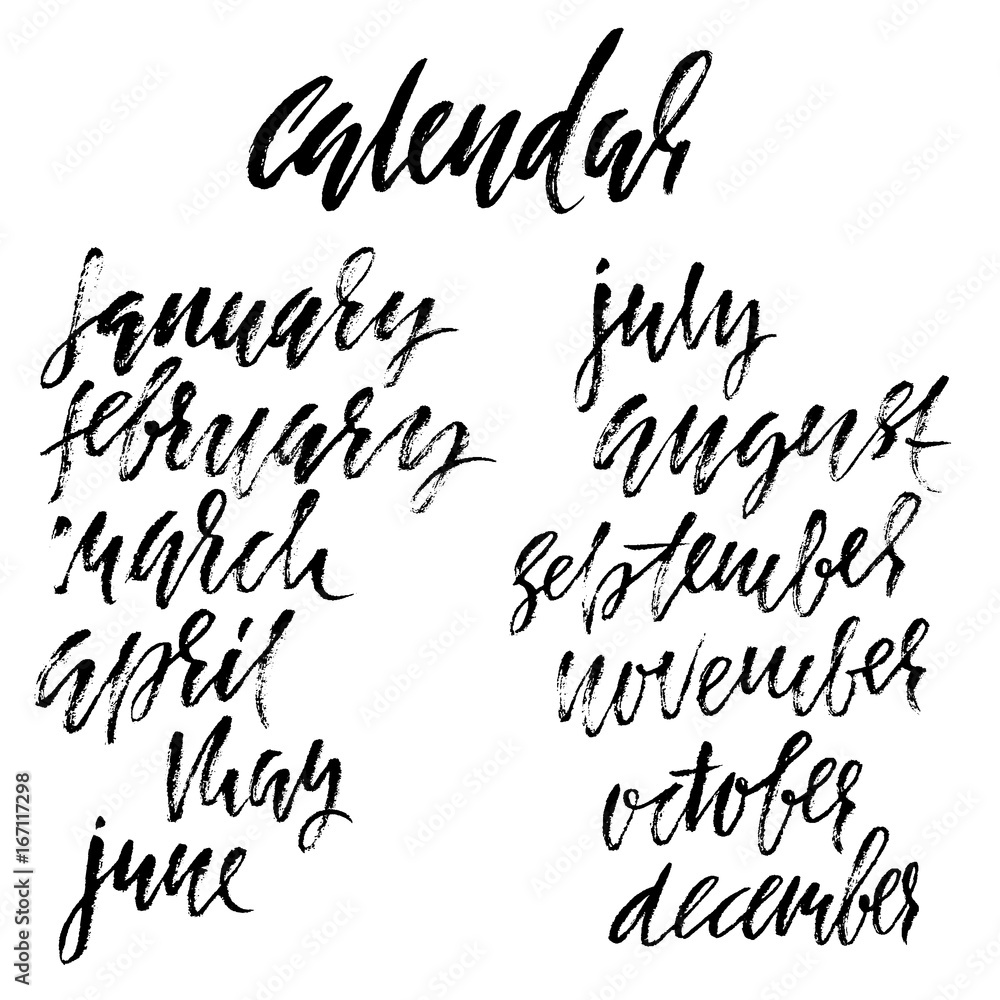 calendar
january
february
march
april
may
june
july
august
september
november
october
december
Adobe Stock | #167117298